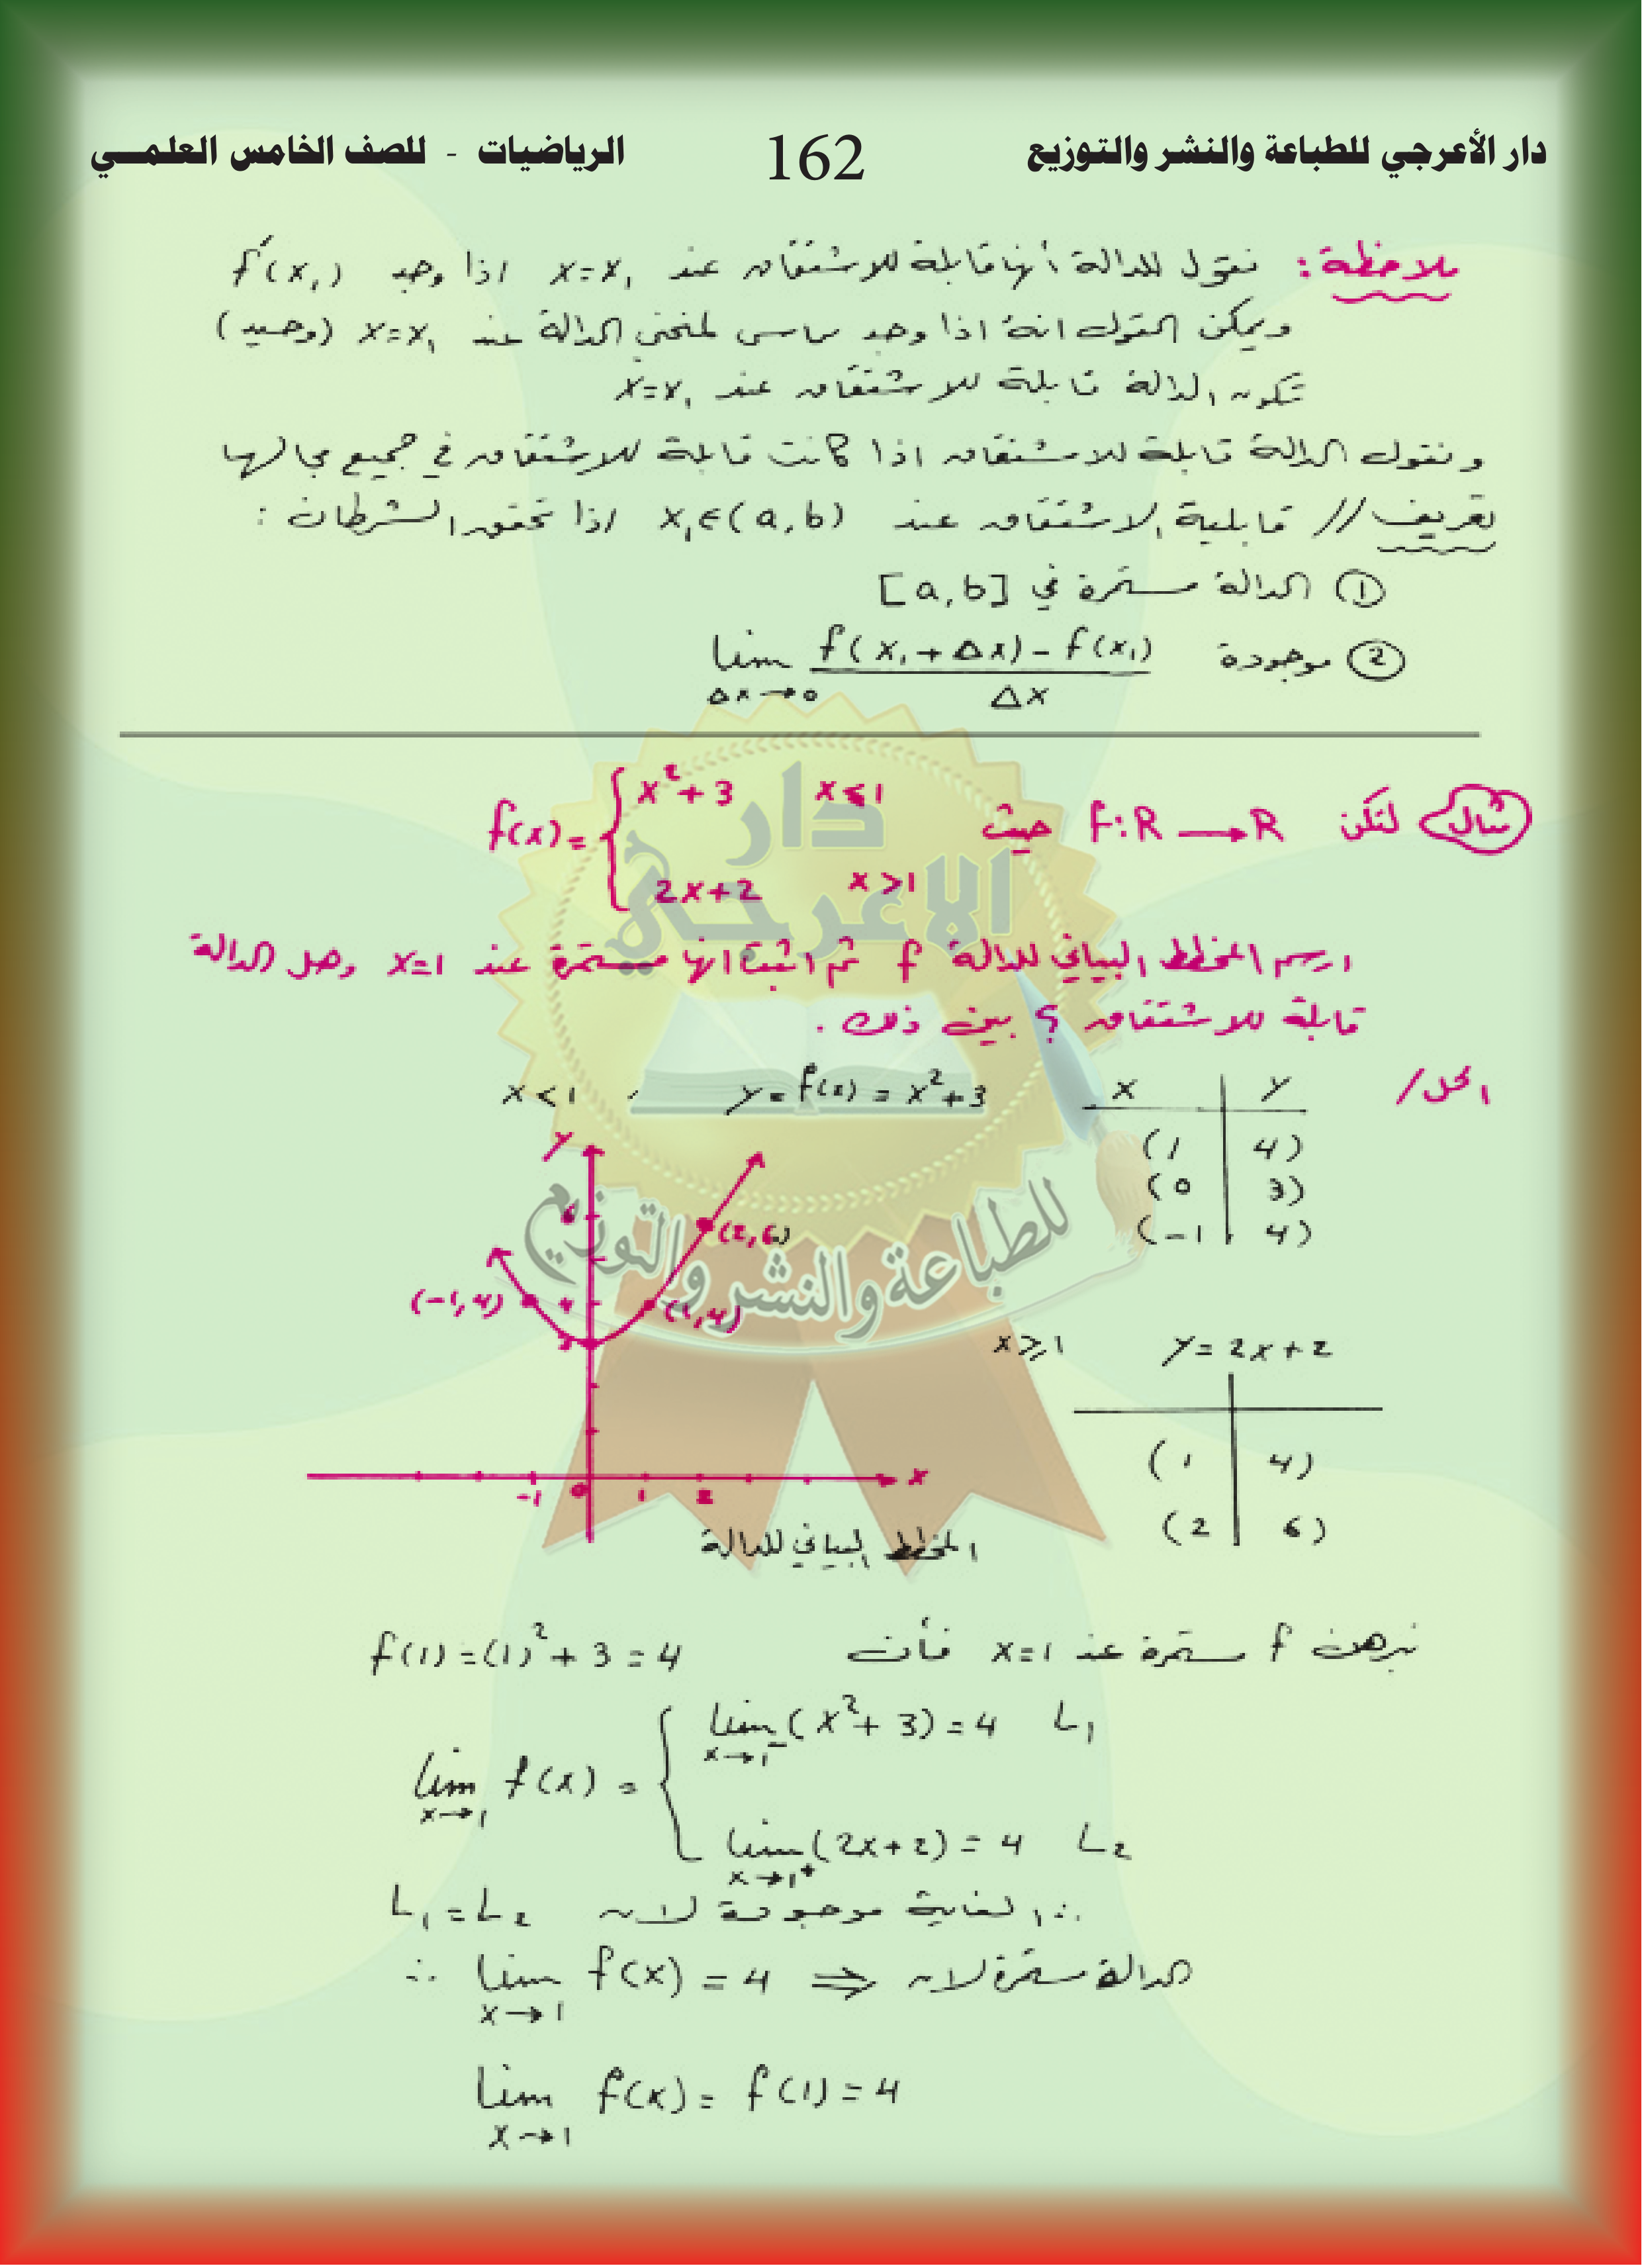 دار الأعرجي للطباعة والنشر والتوزيع 162 الرياضيات - للصف الخامس العلمي
ملاحظة : نقول للدالة أنها قابلة للاشتقاق عند x=x₁ اذا وجد f′(x₁)
ويمكن القول انه اذا وجد مماس لمنحني الدالة عند x=x₁ (وحيد)
تكون الدالة قابلة للاشتقاق عند x=x₁
ونقول الدالة قابلة للاشتقاق اذا كانت قابلة للاشتقاق في جميع مجالها
تعريف // قابلية الاشتقاق عند x₁∈(a,b) اذا تحقق الشرطان :
① الدالة مستمرة في [a,b]
② موجودة lim Δx→0 f(x₁+Δx)-f(x₁) / Δx
مثال لتكن f:R→R حيث f(x)= { x²+3 x⩽1
2x+2 x>1
ارسم المخطط البياني للدالة f ثم اثبت انها مستمرة عند x=1 وهل الدالة
قابلة للاشتقاق ؟ بين ذلك .
الحل / x<1 , y=f(x)=x²+3
x y
(1 4)
(0 3)
(-1 4)
x⩾1 y=2x+2
(1 4)
(2 6)
y
6
(2,6)
(-1,4) 4 (1,4)
3
-1 0 1 2 x
المخطط البياني للدالة
نبرهن f مستمرة عند x=1 فأن f(1)=(1)²+3=4
lim x→1 f(x) = { lim x→1⁻ (x²+3)=4 L₁
lim x→1⁺ (2x+2)=4 L₂
∴ الغاية موجودة لان L₁=L₂
∴ lim x→1 f(x)=4 ⇒ الدالة مستمرة لان
lim x→1 f(x)=f(1)=4
دار
الاعرجي
للطباعة والنشر والتوزيع